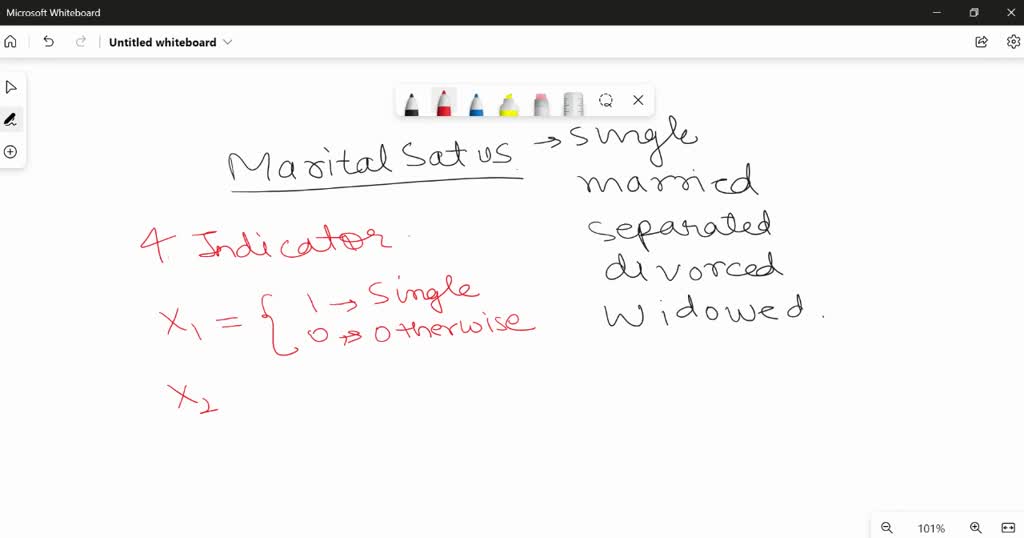 Microsoft Whiteboard
Untitled whiteboard
Marital Satus → Single
married
separated
divorced
widowed.
4 Indicator
X1 = { 1 → Single
0 → otherwise
X2
101%